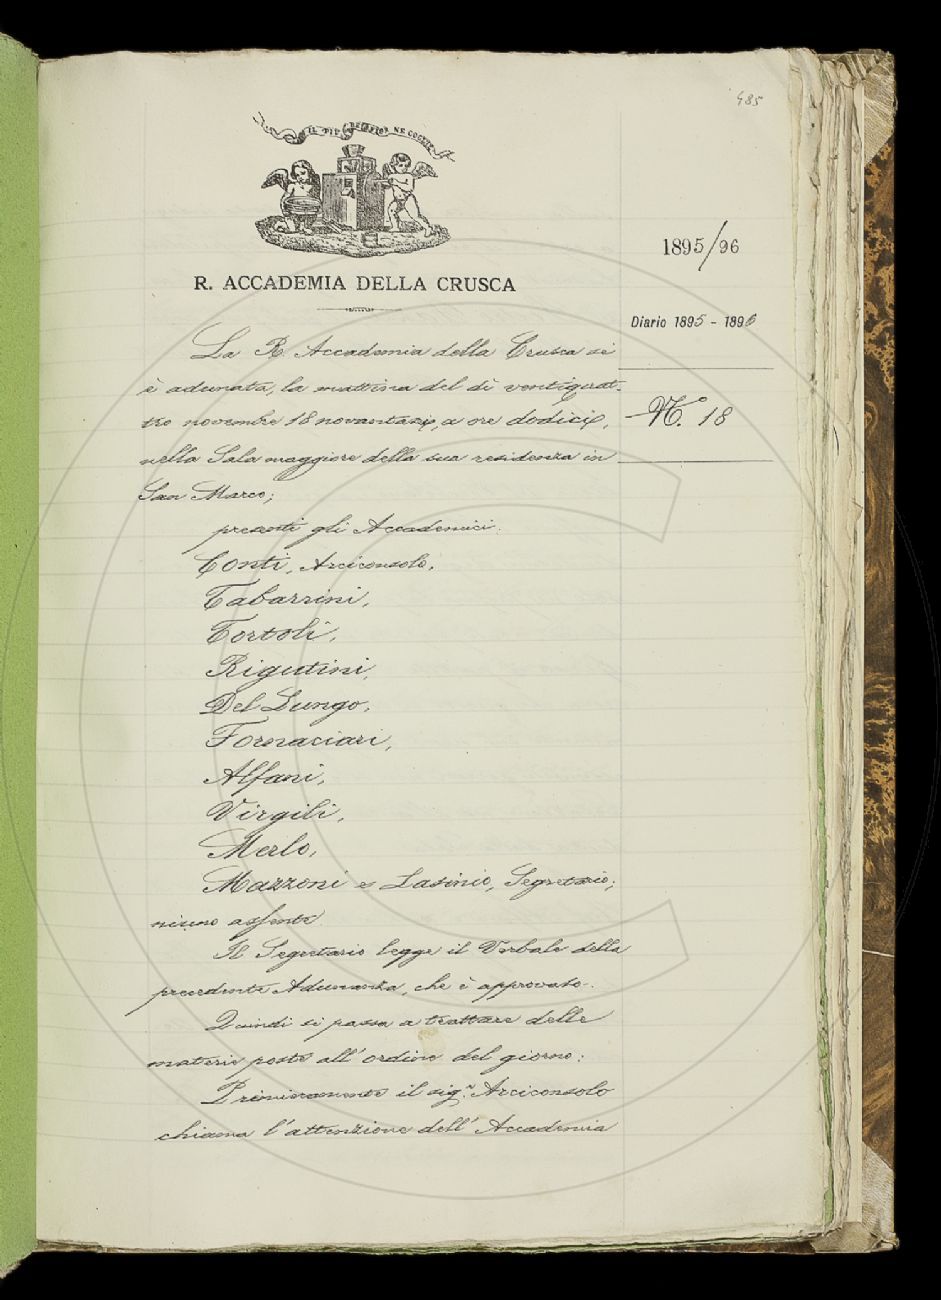 485
IL PIÙ BEL FIOR NE COGLIE
R. ACCADEMIA DELLA CRUSCA
1895/96
Diario 1895 - 1896
N.° 18
La R. Accademia della Crusca si
è adunata, la mattina del dì ventiquat-
tro novembre 18novantasei, a ore dodici,
nella Sala maggiore della sua residenza in
San Marco;
presenti gli Accademici:
Conti, Arciconsolo,
Tabarrini,
Tortoli,
Rigutini,
Del Lungo,
Fornaciari,
Alfani,
Virgili,
Merlo,
Mazzoni e Lasinio, Segretario;
niuno assente.
Il Segretario legge il Verbale della
precedente Adunanza, che è approvato.
Quindi si passa a trattare delle
materie poste all'ordine del giorno:
Primieramente il sig.r Arciconsolo
chiama l'attenzione dell'Accademia